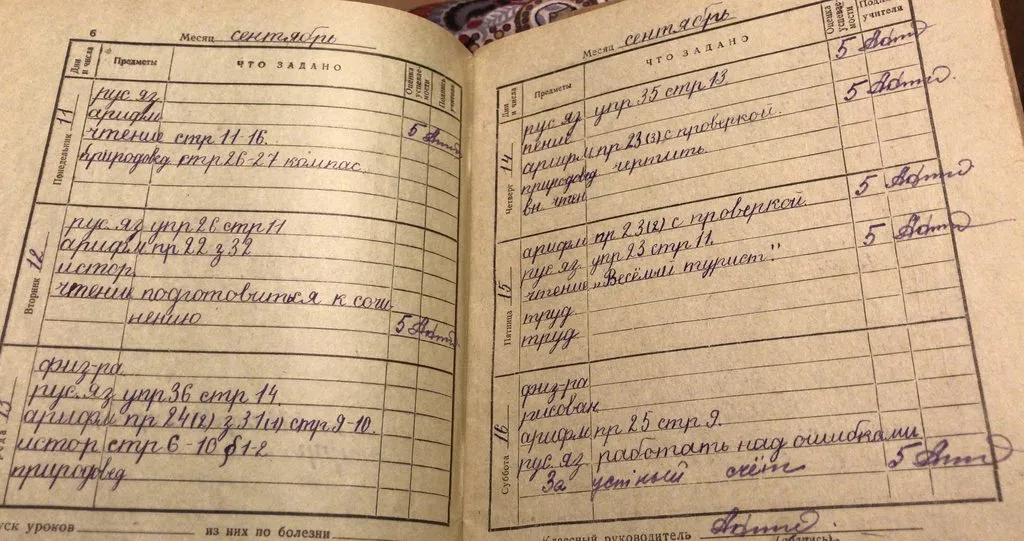 6
Месяц сентябрь
Дни и числа
Предметы
ЧТО ЗАДАНО
Оценка успеваемости
Подпись учителя
Понедельник 11
рус. яз.
арифм
чтение стр 11-16. 5
природовед стр 26-27 компас.
Вторник 12
рус. яз. упр 26 стр 11
арифм пр 22 з 32
истор.
чтение подготовиться к сочи-
нению 5
13
физ-ра
рус. яз. упр 36 стр 14.
арифм пр 24(2) з 31(1) стр 9-10.
истор стр 6-10 § 1-2.
природовед
уроков из них по болезни
Месяц сентябрь
Дни и числа
Предметы
ЧТО ЗАДАНО
Оценка успеваемости
учителя
Четверг 14
рус. яз упр 35 стр 13 5
пение
арифм пр 23(3) с проверкой. 5
природовед чертить.
вн. чтен.
Пятница 15
арифм пр 23(2) с проверкой. 5
рус. яз. упр 23 стр 11.
чтение „Весёлый турист." 5
труд
труд
Суббота 16
физ-ра
рисован.
арифм пр 25 стр 9.
рус. яз работать над ошибками
За устный счёт 5
Классный руководитель
(подпись)